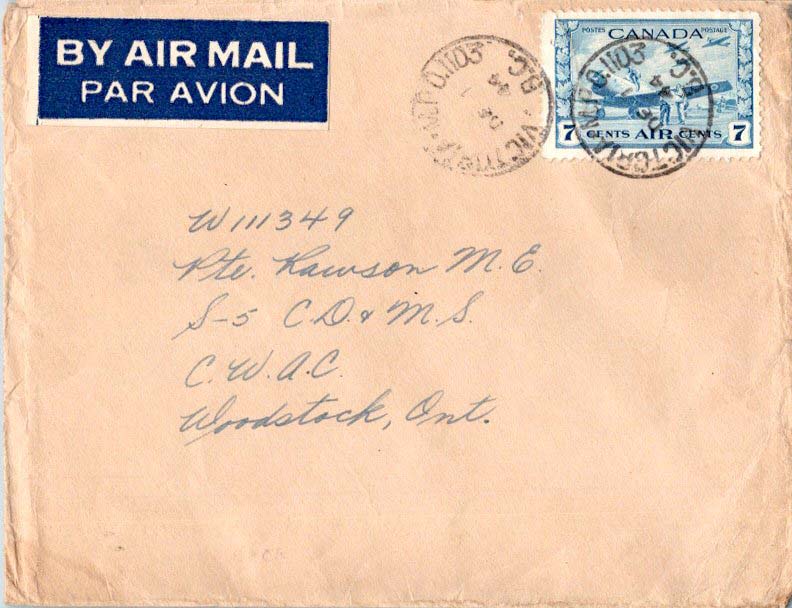 BY AIR MAIL
PAR AVION
POSTES CANADA POSTAGE
7 CENTS AIR CENTS 7
VICTORIA M.P.O. 1103 B.C.
DE 7
44
VICTORIA M.P.O. 1103 B.C.
DE 7
44
W111349
Pte. Rawson M.E.
S-5 C.D. & M.S.
C.W.A.C.
Woodstock, Ont.